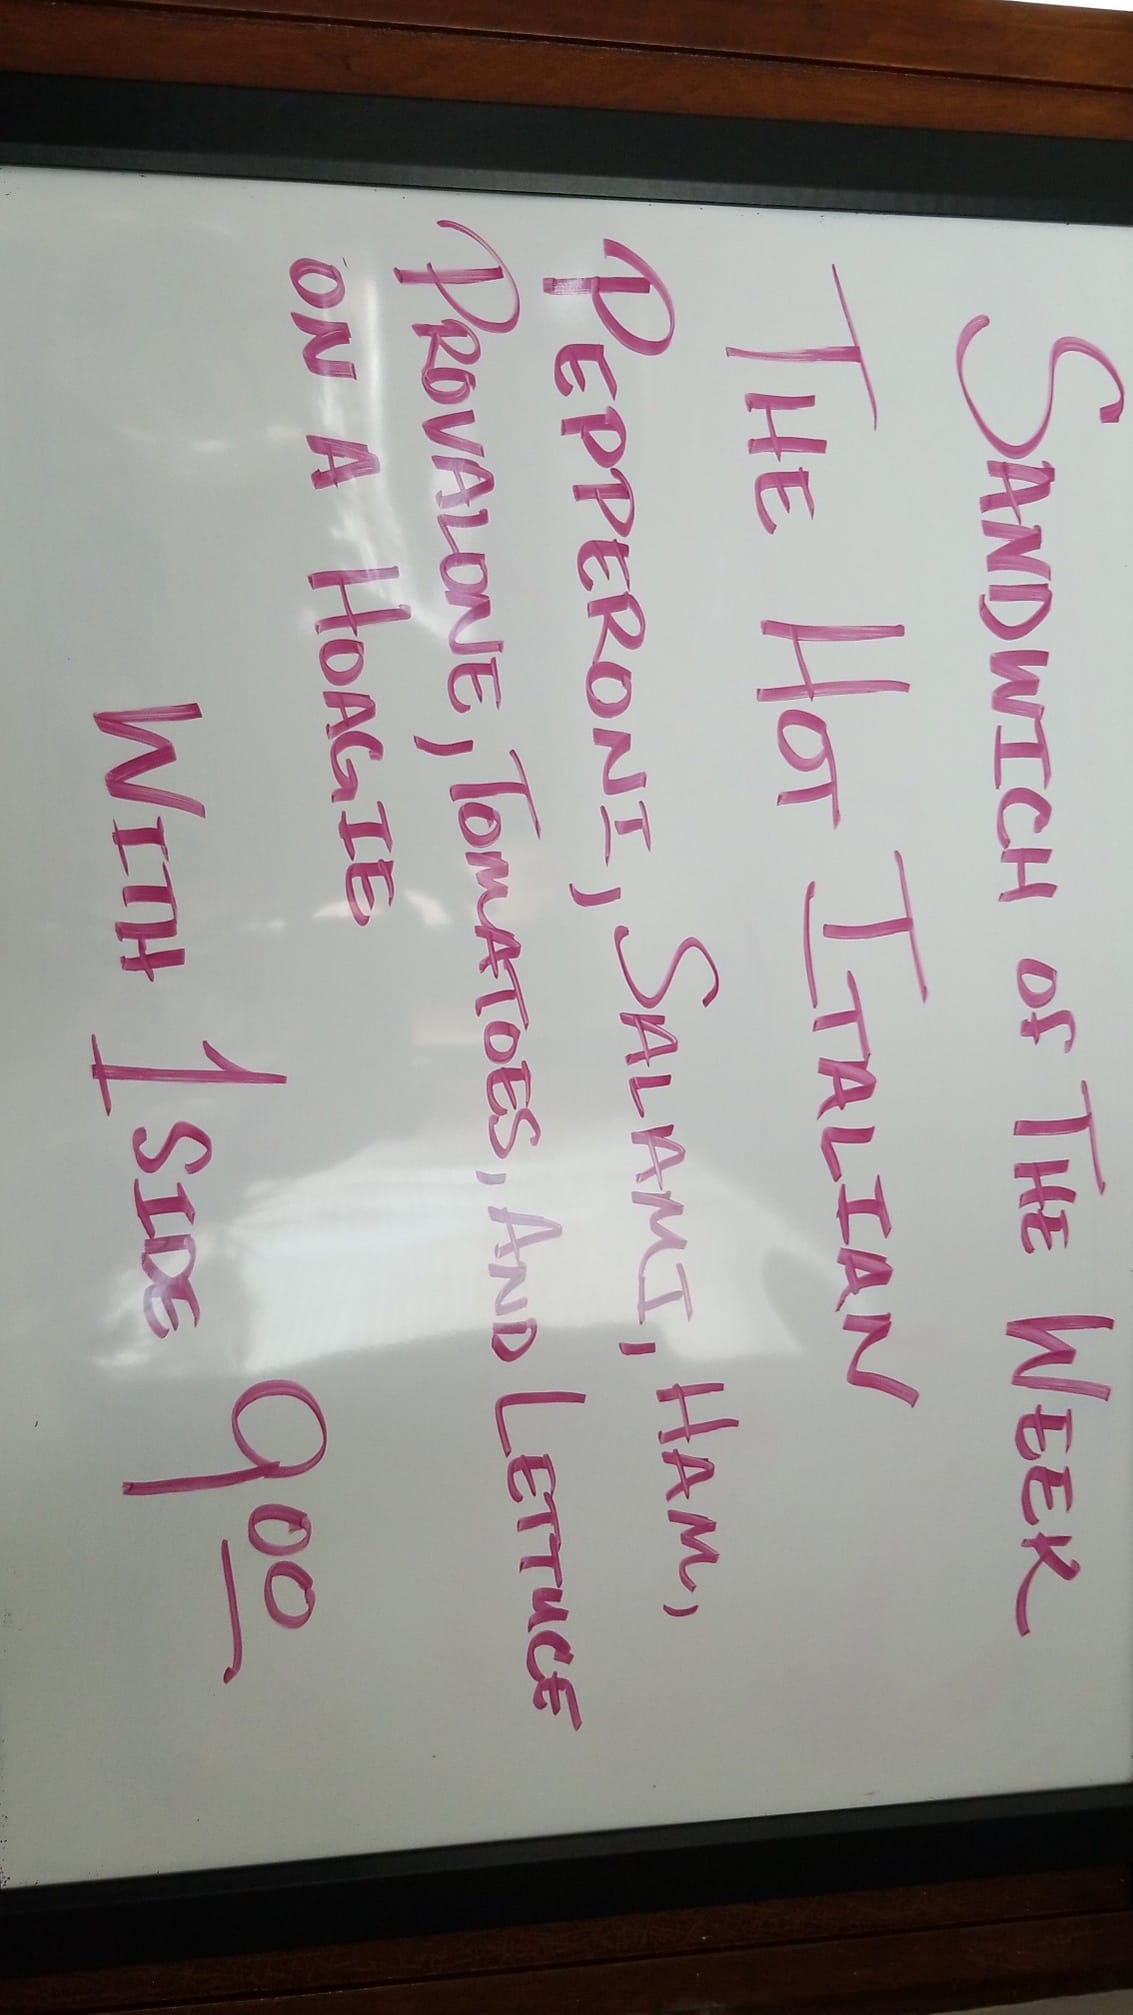 SANDWICH OF THE WEEK
THE HOT ITALIAN
PEPPERONI, SALAMI, HAM,
PROVALONE, TOMATOES, AND LETTUCE
ON A HOAGIE
WITH 1 SIDE 900